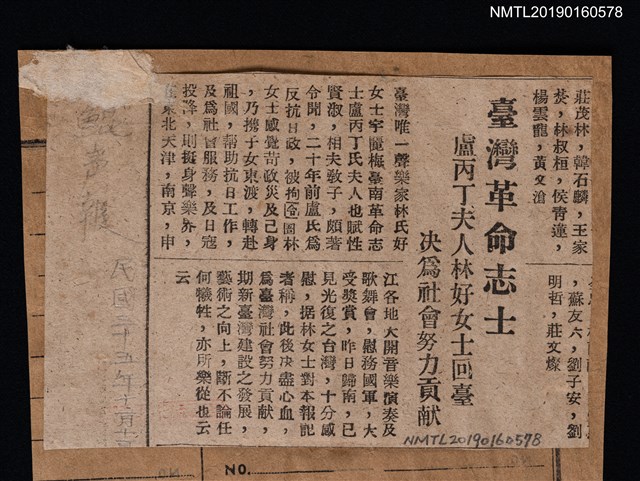 NMTL20190160578
莊茂林,韓石麟,王家
焚,林叔桓,侯青蓮,
楊雲龍,黃文滄
,蘇友六,劉子安,劉
明哲,莊文燦
臺灣革命志士
盧丙丁夫人林好女士回臺
決爲社會努力貢献
臺灣唯一聲樂家林氏好
女士字麗梅臺南革命志
士盧丙丁氏夫人也賦性
賢淑,相夫敎子,頗著
令聞,二十年前盧氏爲
反抗日政,被拘囹圄林
女士感覺苛政災及己身
,乃携子女東渡,轉赴
祖國,帮助抗日工作,
及爲社會服務,及日寇
投降,則挺身聲樂界,
在東北天津,南京,申
江各地大開音樂演奏及
歌舞會,慰務國軍,大
受獎賞,昨日歸南,已
見光復之台灣,十分感
慰,據林女士對本報記
者稱,此後决盡心血,
爲臺灣社會努力貢献,
期新臺灣建設之發展,
藝術之向上,斷不論任
何犧牲,亦所樂從也云
云
民國三十五年
NMTL20190160578
NO.